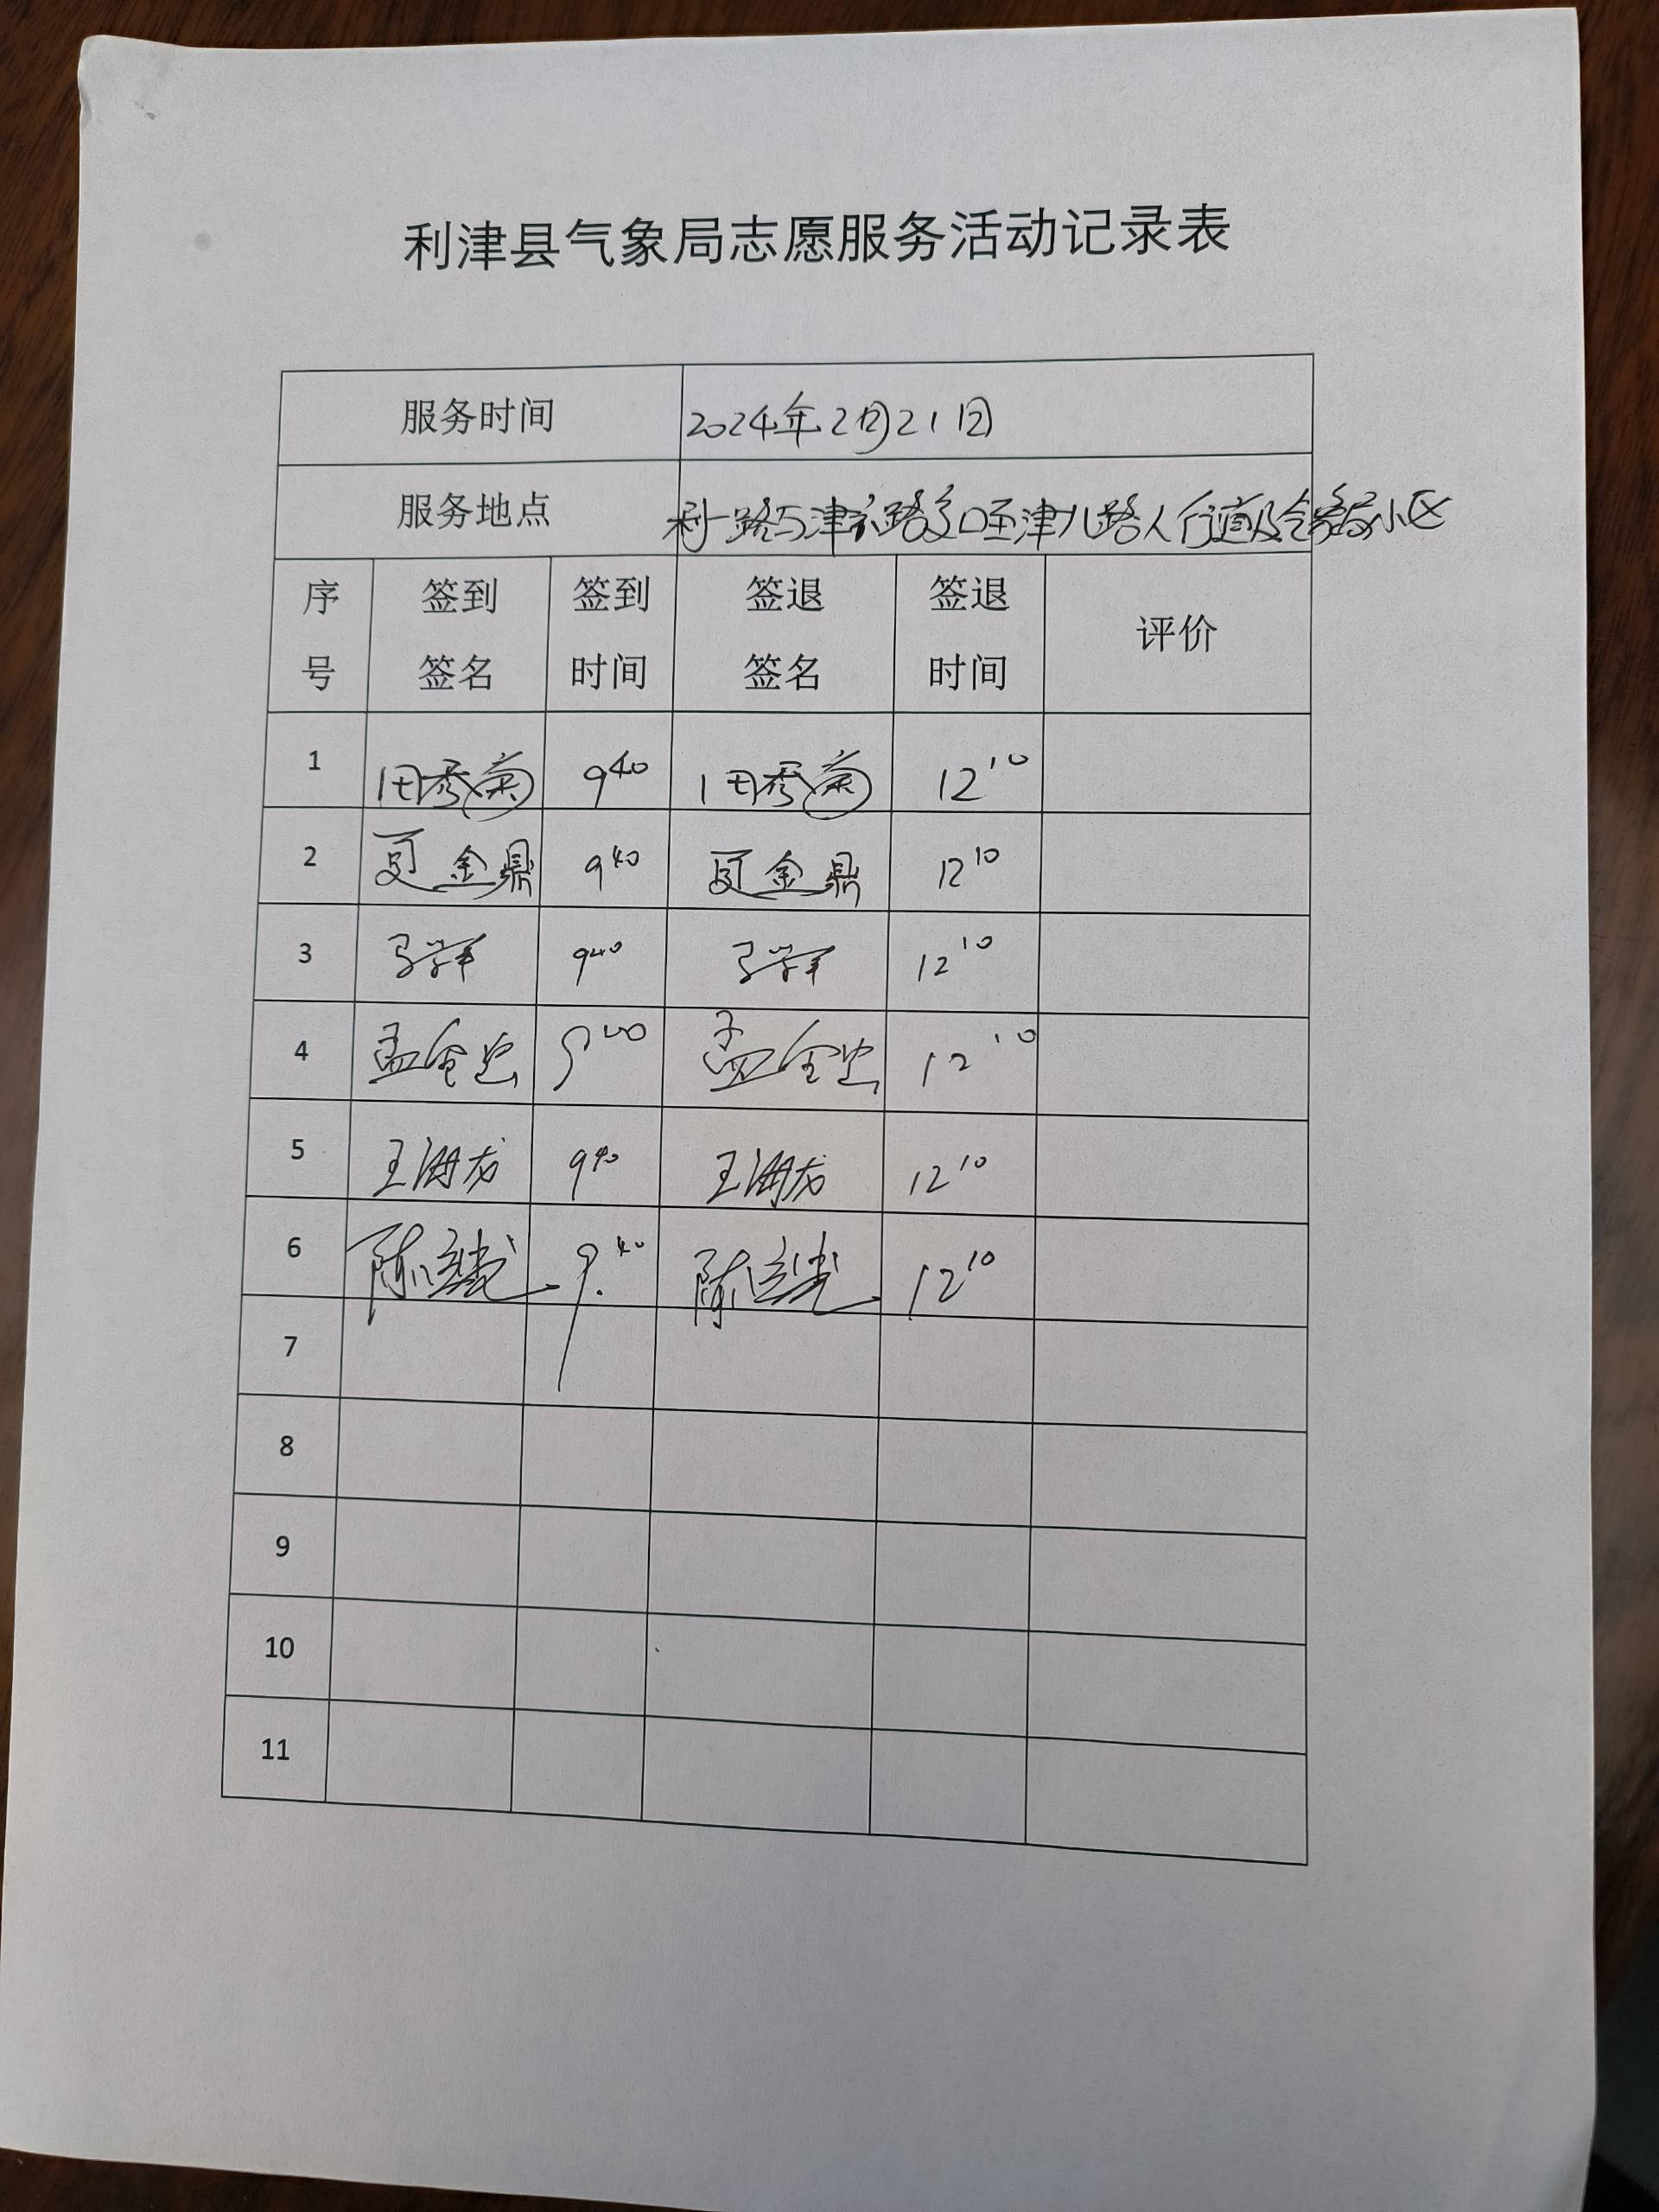 利津县气象局志愿服务活动记录表
服务时间 2024年2月21日
服务地点 利一路与津六路交口至津八路人行道及气象局小区
序号 签到签名 签到时间 签退签名 签退时间 评价
1 田秀菊 9 40 田秀菊 12 10
2 夏金鼎 9 40 夏金鼎 12 10
3 9 40 12 10
4 孟金忠 9 40 孟金忠 12 10
5 王海龙 9 40 王海龙 12 10
6 陈 9 40 陈 12 10
7
8
9
10
11